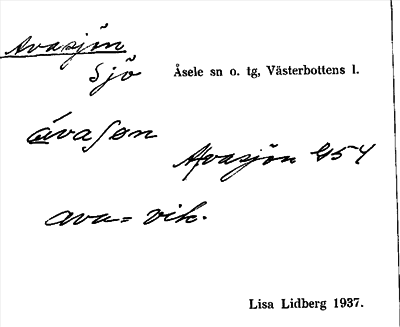 Avasjön
Sjö Åsele sn o. tg, Västerbottens l.
ávaʃøn
Avasjön G54
ava = vik.
Lisa Lidberg 1937.